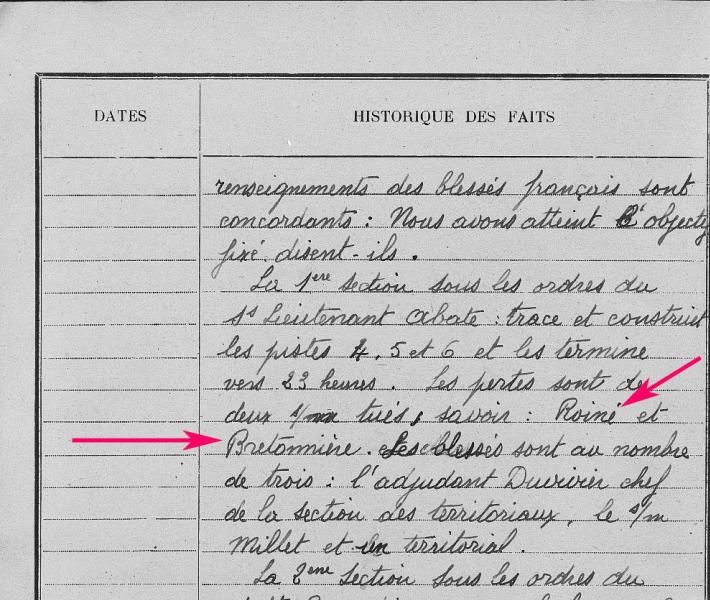 DATES
HISTORIQUE DES FAITS
renseignements des blessés français sont
concordants : Nous avons atteint l'objectif
fixé disent-ils.
La 1ère section sous les ordres du
s/s Lieutenant Abate : trace et construit
les pistes 4, 5 et 6 et les termine
vers 23 heures. Les pertes sont de
deux s/m tués, savoir : Roiné et
Bretonnière. Les blessés sont au nombre
de trois : l'adjudant Duvivier chef
de la section des territoriaux, le s/m
Millet et un territorial.
La 2ème Section sous les ordres du